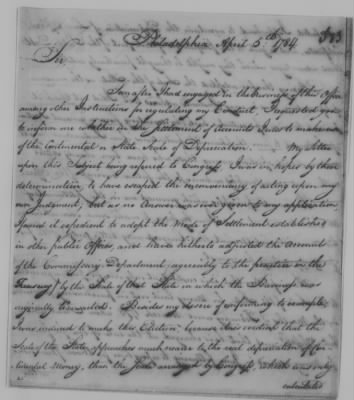 Philadelphia April 5th 1784
Sir
Soon after I had engaged in the Business of this Office
among other Instructions for regulating my Conduct, I requested you
to inform me whether in the Settlement of Accounts I was to make use
of the Continental or State Scale of Depreciation. My Letter
upon this Subject being referred to Congress I was in hopes by their
determination, to have escaped the inconveniency of acting upon my
own Judgment, but as no Answer was ever given to my application
I found it expedient to adopt the Mode of Settlement established
in other public Offices, and have hitherto adjusted the Accounts
of the Commissary Department, agreeably to the practice in the
Treasury, by the Scale of that State in which the Business was
originally transacted. Besides my desire of conforming to example
I was induced to make this Election, because I was convinced that the
Scale of the States approaches much nearer to the real depreciation of Con-
tinental Money, than the Scale arranged by Congress, which was only
calculated